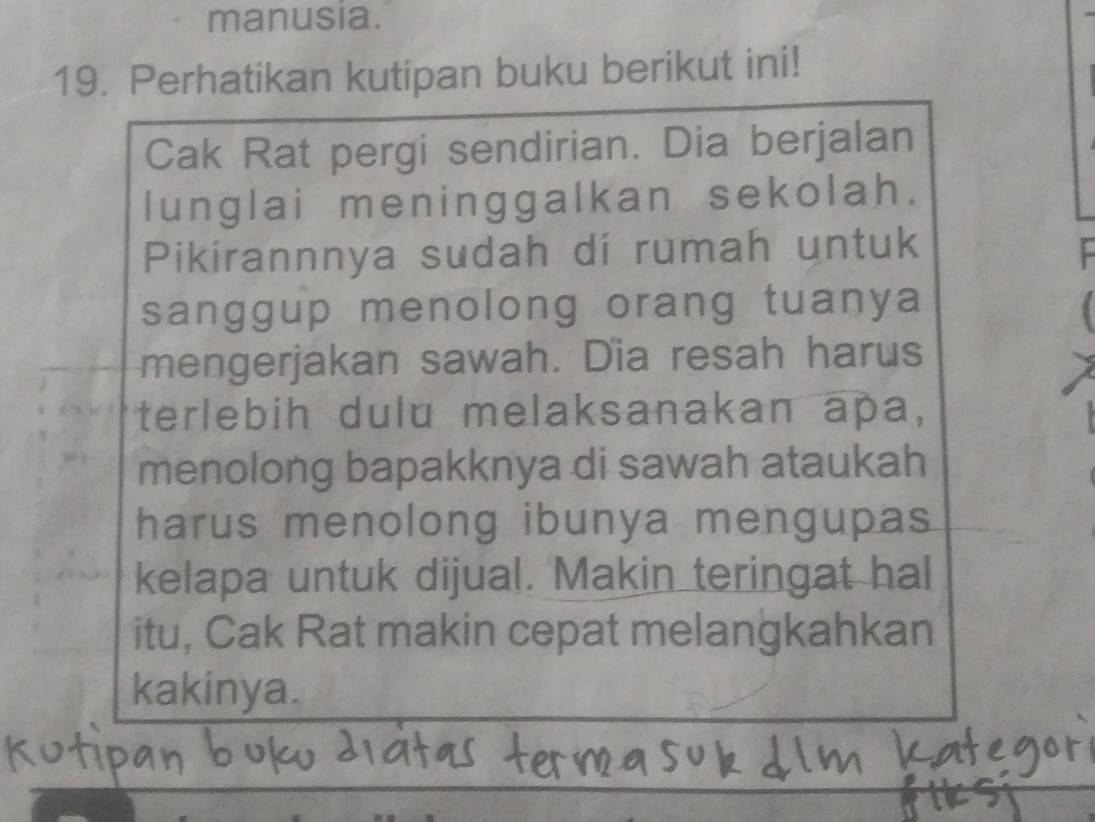 manusia.
19. Perhatikan kutipan buku berikut ini!
Cak Rat pergi sendirian. Dia berjalan
lunglai meninggalkan sekolah.
Pikirannnya sudah di rumah untuk
sanggup menolong orang tuanya
mengerjakan sawah. Dia resah harus
terlebih dulu melaksanakan apa,
menolong bapakknya di sawah ataukah
harus menolong ibunya mengupas
kelapa untuk dijual. Makin teringat hal
itu, Cak Rat makin cepat melangkahkan
kakinya.
Kutipan buku diatas termasuk dlm kategori
fiksi